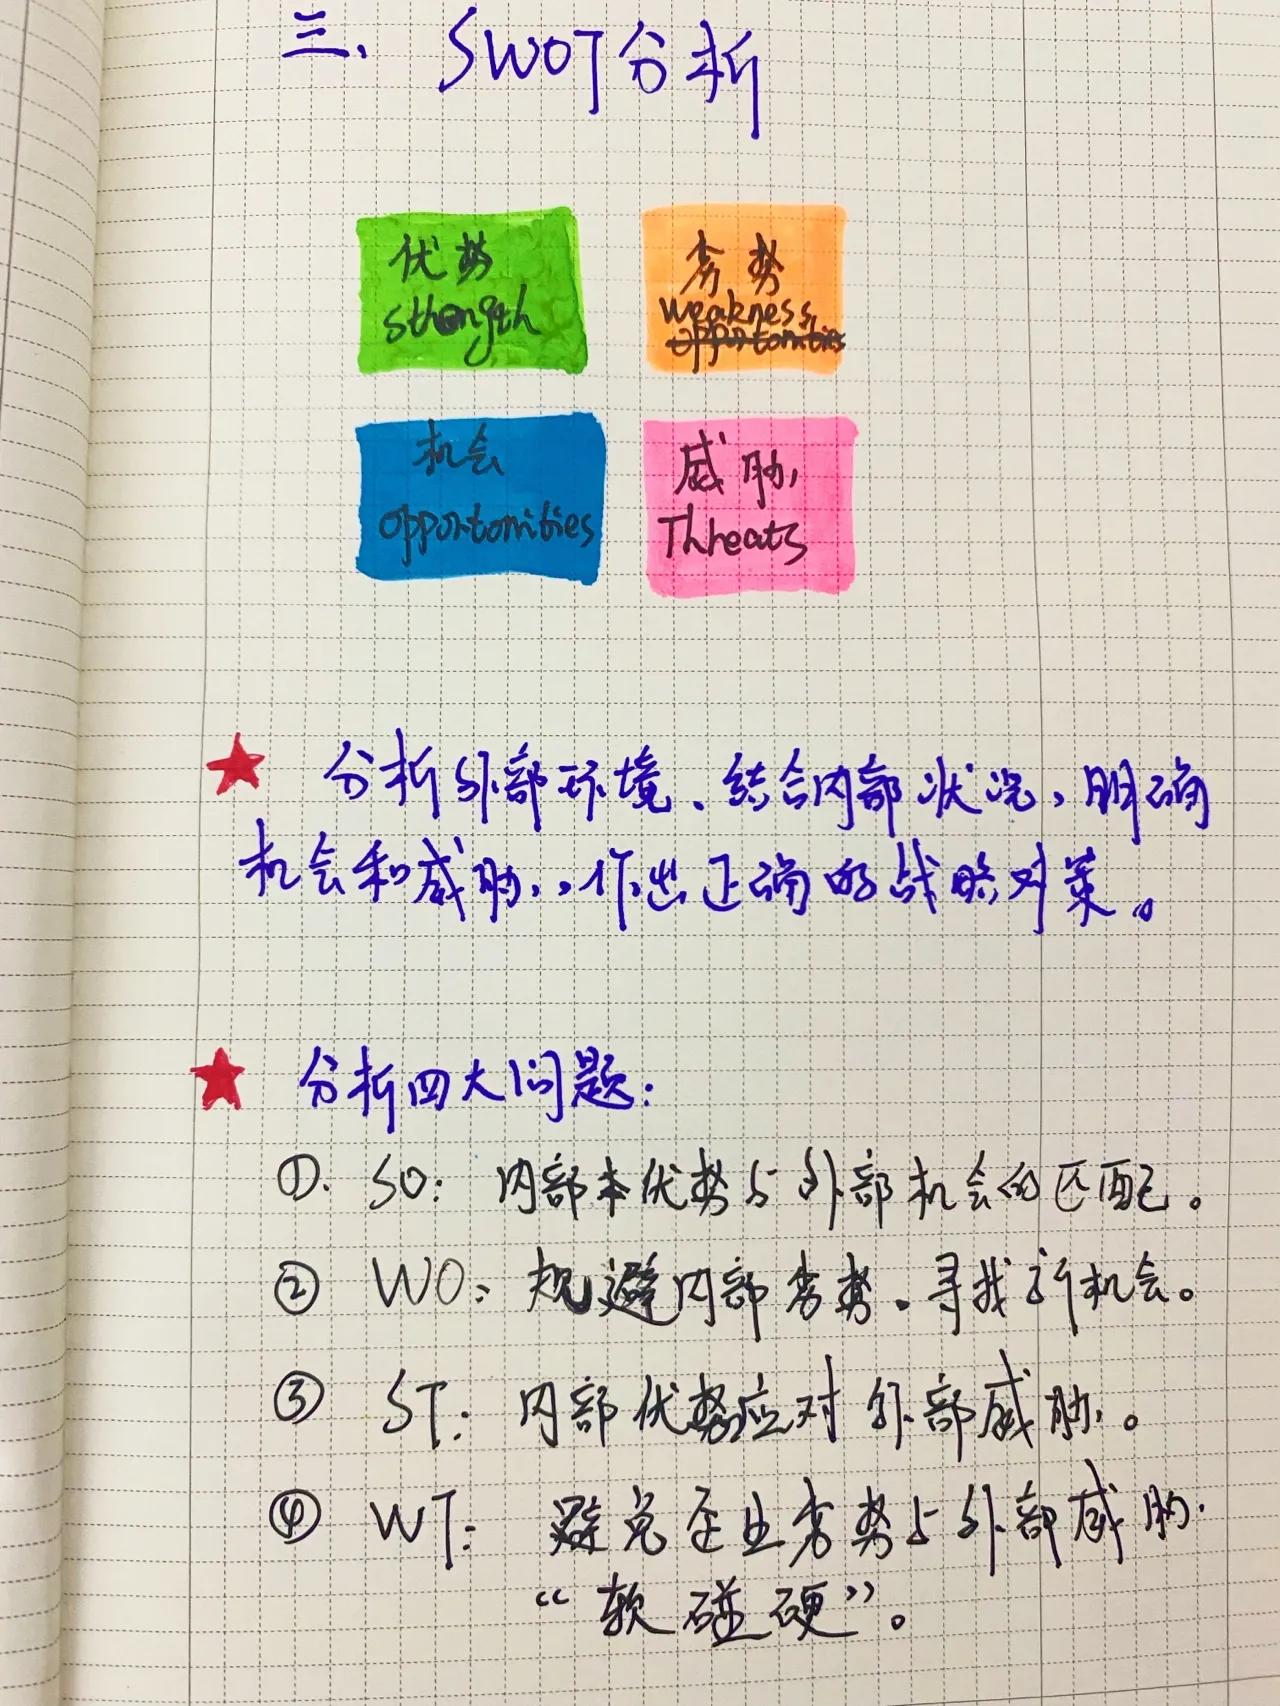 三、SWOT分析
优势
strength
劣势
weakness
opportonities
机会
opportonities
威胁
Threats
★ 分析外部环境、结合内部状况,明确
机会和威胁,作出正确的战略对策。
★ 分析四大问题:
①. SO: 内部本优势与外部机会的匹配。
② WO: 规避内部劣势。寻找新机会。
③ ST: 内部优势应对外部威胁。
④ WT: 避免企业劣势与外部威胁.
“软碰硬”。